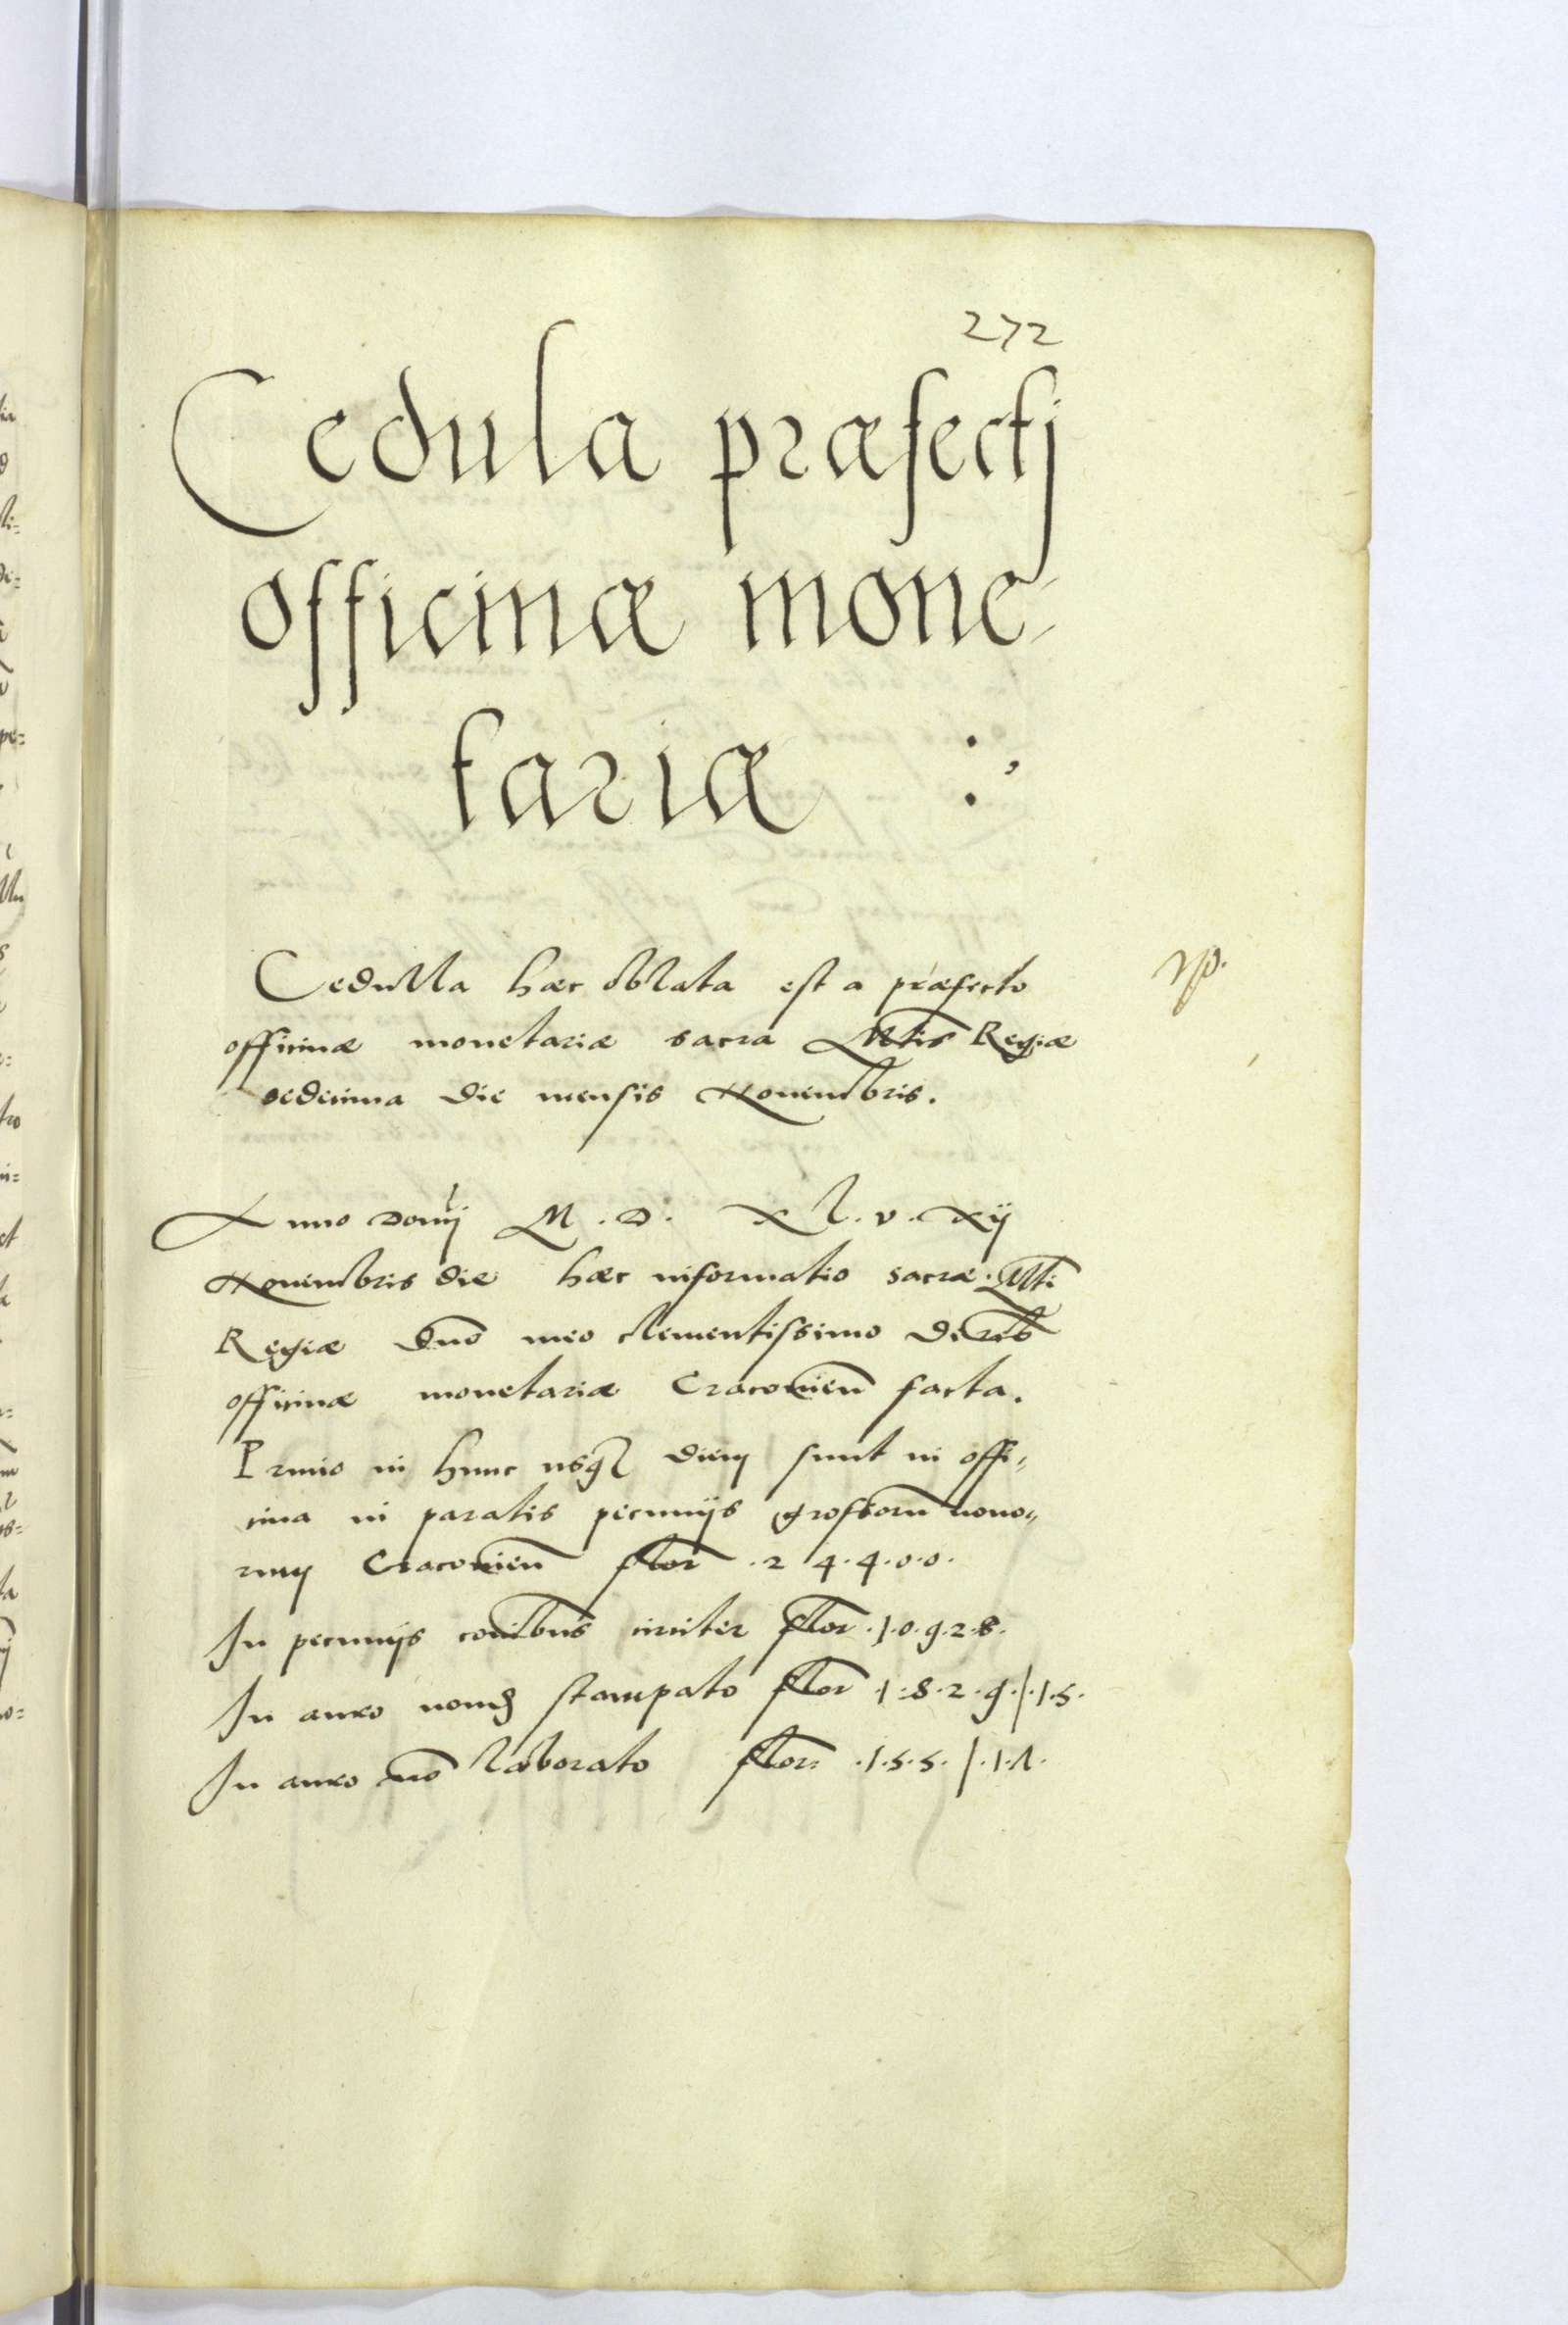 272
Cedula præfectj
officinæ mone-
tariæ :,
Cedulla hæc oblata est a præfecto
officinæ monetariæ sacra Mtis Regiæ
sedecima die mensis Nouembris.
Anno Domij M . D . XL . v . Xij
Nouembris die hæc informatio sacræ . Mti
Regiæ Dno meo clementissimo de reb
officinæ monetariæ Cracovien facta.
Primo in hunc usq diem sunt in offi-
cina in paratis pecunijs grossorum nouo-
rum Cracovien flor . 2 4 . 4 . 0 . 0 .
In pecunijs coibus circiter flor . 1 . 0 . 9 . 2 . 8 .
In auro stampato flor 1 : 8 . 2 . 9 . / . 1 . 5 .
In auro no laborato flor . 1 . 5 . 5 . / . 1 . 1 .